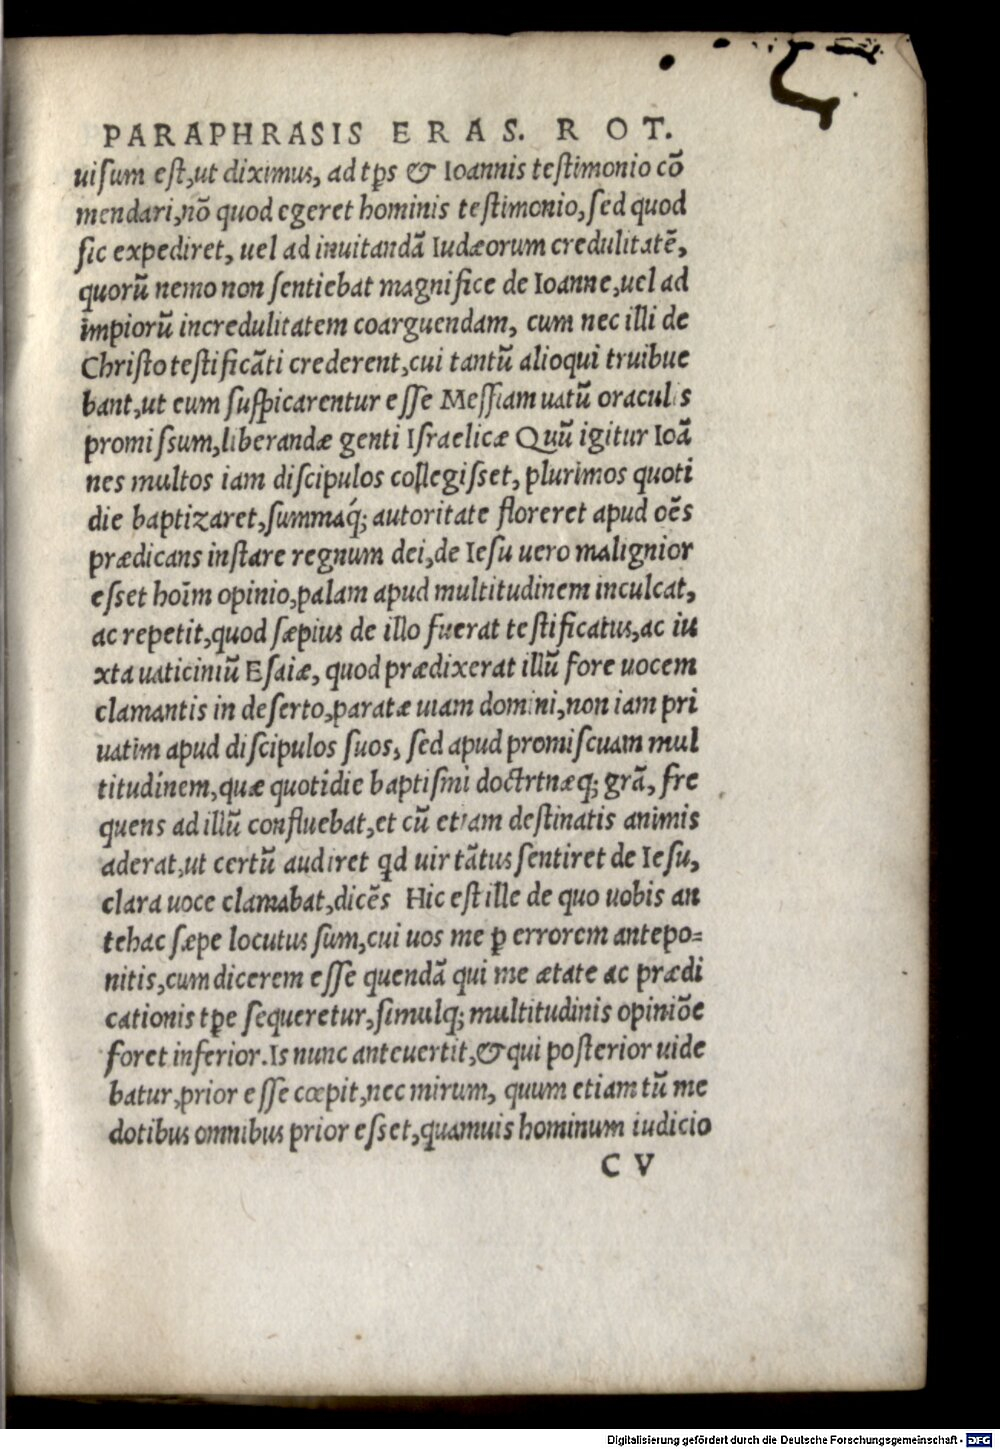 PARAPHRASIS ERAS. ROT.
uiſum eſt,ut diximus, ad tp̄s & Ioannis teſtimonio cō
mendari,nō quod egeret hominis teſtimonio,ſed quod
ſic expediret, uel ad inuitandā Iudæorum credulitatē,
quorū nemo non ſentiebat magnifice de Ioanne,uel ad
impiorū incredulitatem coarguendam, cum nec illi de
Chriſto teſtificāti crederent,cui tantū alioqui truibue
bant,ut eum ſuſpicarentur eſſe Meſſiam uatū oraculis
promiſſum,liberandæ genti Iſraelicæ Quū igitur Ioā
nes multos iam diſcipulos collegiſſet, plurimos quoti
die baptizaret,ſummaq́; autoritate floreret apud oēs
prædicans inſtare regnum dei,de Ieſu uero malignior
eſſet hoīm opinio,palam apud multitudinem inculcat,
ac repetit,quod ſæpius de illo fuerat teſtificatus,ac iu
xta uaticiniū Eſaiæ, quod prædixerat illū fore uocem
clamantis in deſerto,paratæ uiam domini,non iam pri
uatim apud diſcipulos ſuos, ſed apud promiſcuam mul
titudinem,quæ quotidie baptiſmi doctrtnæq; grā, fre
quens ad illū confluebat,et cū etiam deſtinatis animis
aderat,ut certū audiret qd uir tātus ſentiret de Ieſu,
clara uoce clamabat,dicēs Hic eſt ille de quo uobis an
tehac ſæpe locutus ſum,cui uos me ꝑ errorem antepo=
nitis,cum dicerem eſſe quendā qui me ætate ac prædi
cationis tp̄e ſequeretur,ſimulq; multitudinis opiniōe
foret inferior.Is nunc anteuertit,& qui poſterior uide
batur,prior eſſe cœpit,nec mirum, quum etiam tū me
dotibus omnibus prior eſſet,quamuis hominum iudicio
C V
Digitalisierung gefördert durch die Deutsche Forschungsgemeinschaft - DFG